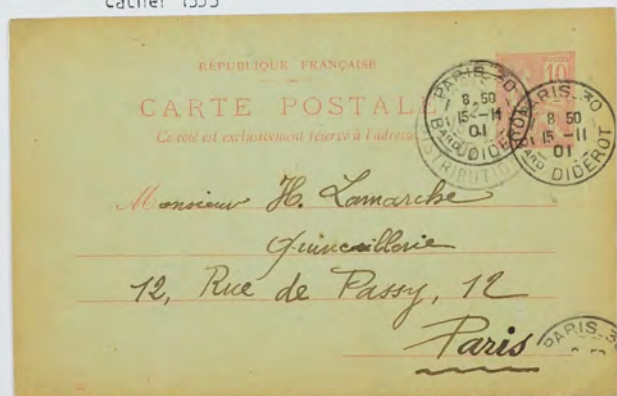 Cachet 1335
RÉPUBLIQUE FRANÇAISE
10
CARTE POSTALE
Ce côté est exclusivement réservé à l'adresse
PARIS. 30
8 50
15 -11
01
BARD DIDEROT
DISTRIBUTION
PARIS. 30
8 50
15 -11
01
BARD DIDEROT
Monsieur H. Lamarche
Quincaillerie
12, Rue de Passy, 12
Paris
PARIS. 3